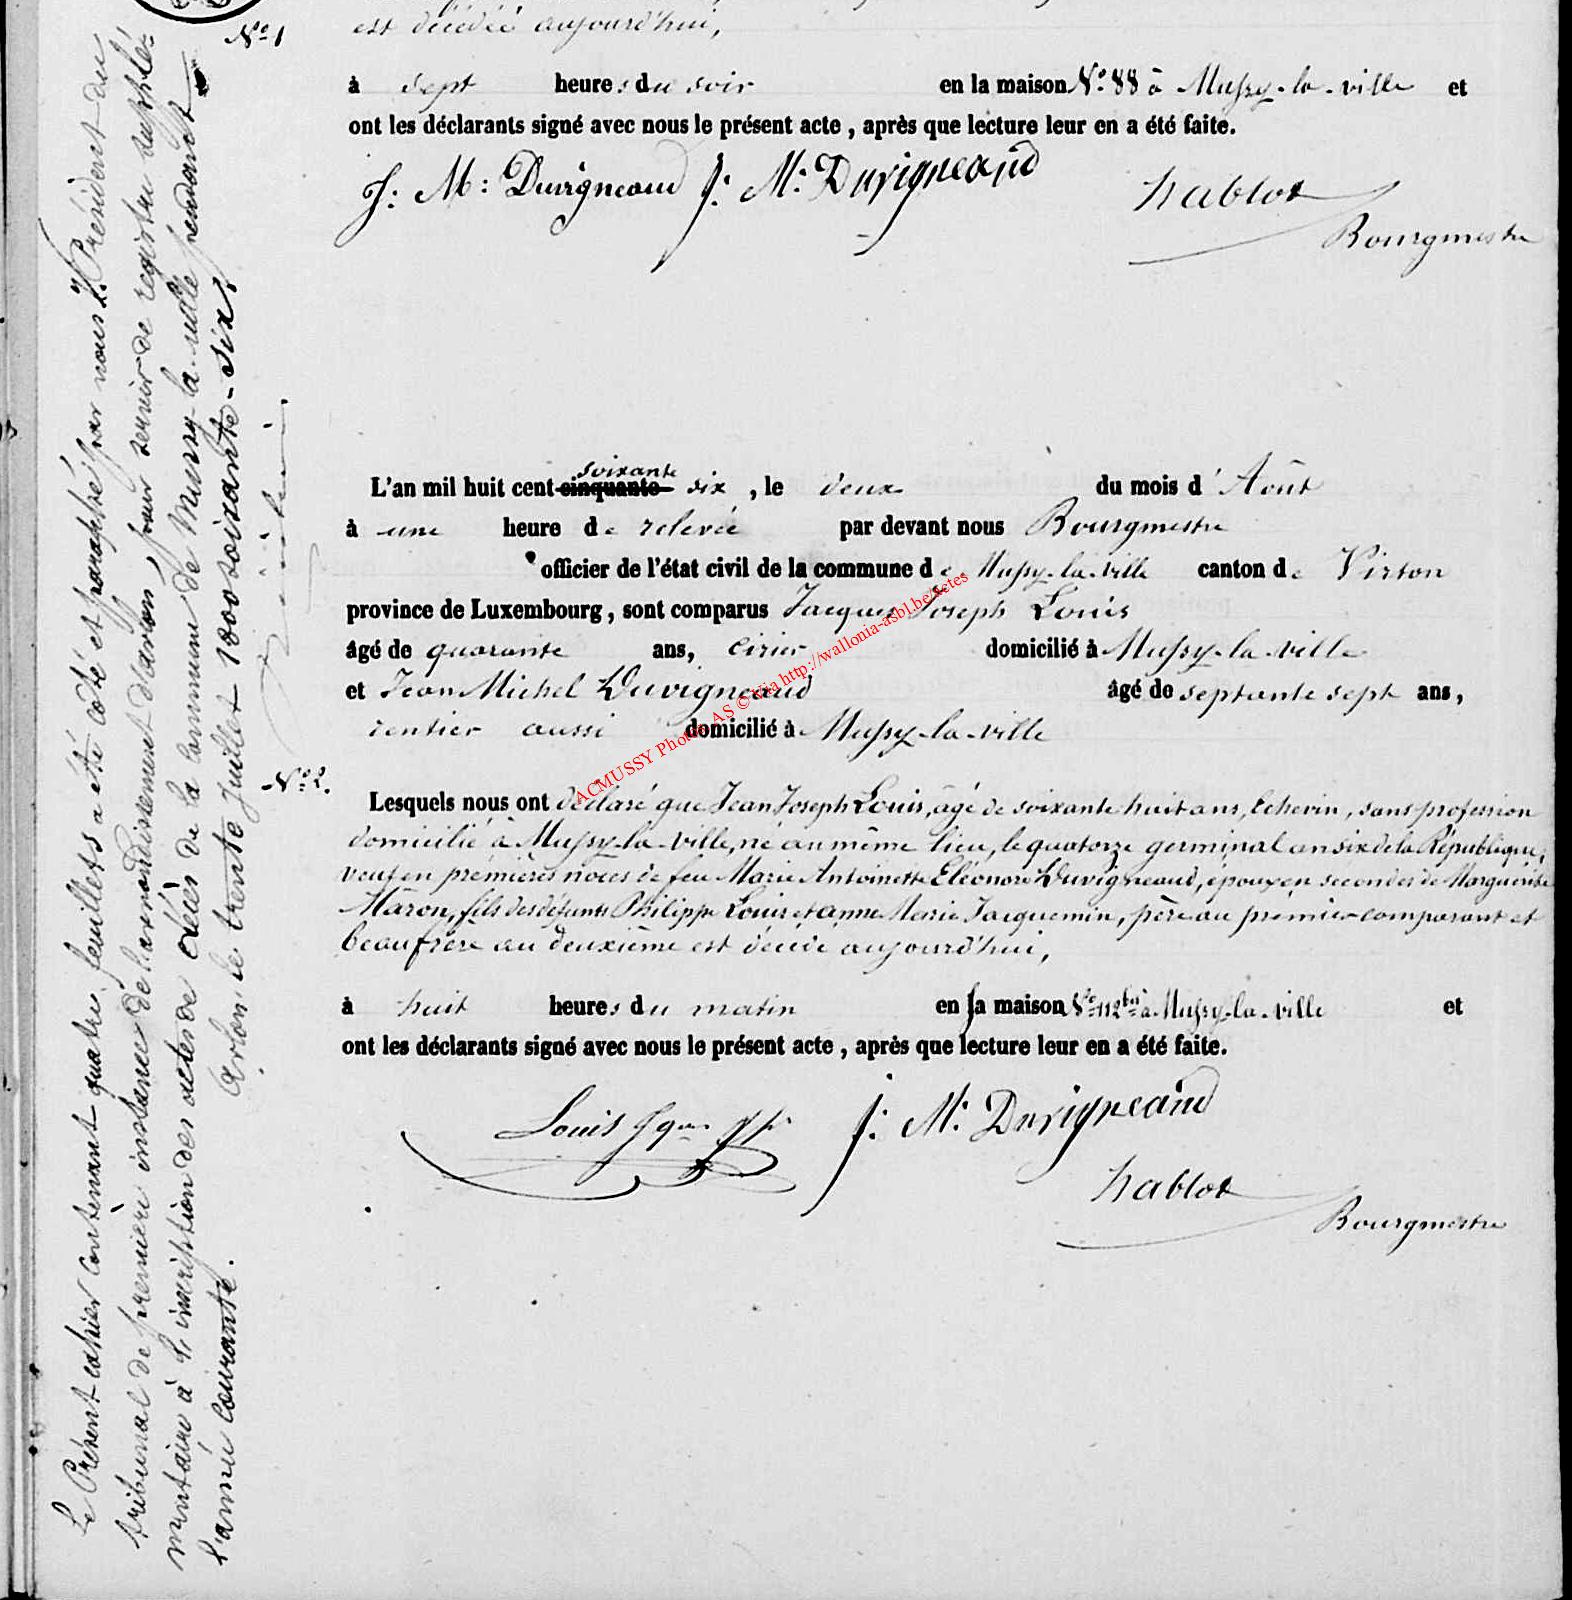 N.º 1
est décédée aujourd'hui,
à sept heures du soir en la maison N.º 88 à Mussy-la-ville et
ont les déclarants signé avec nous le présent acte, après que lecture leur en a été faite.
J. M: Duvigneaud J. M. Duvigneaud hablot
Bourgmestre
soixante
L'an mil huit cent cinquante six, le deux du mois d'Août
à une heure de relevée par devant nous Bourgmestre
officier de l'état civil de la commune de Mussy-la-ville canton de Virton
province de Luxembourg, sont comparus Jacques Joseph Louis
âgé de quarante ans, cirier domicilié à Mussy-la-ville
et Jean Michel Duvigneaud âgé de septante sept ans,
rentier aussi domicilié à Mussy-la-ville
N.º 2.
Lesquels nous ont déclaré que Jean Joseph Louis, âgé de soixante huit ans, Echevin, sans profession
domicilié à Mussy-la-ville, né au même lieu, le quatorze germinal an six de la République,
veuf en premières noces de feu Marie Antoinette Eléonore Duvigneaud, époux en secondes de Marguerite
Maron, fils des défunts Philippe Louis et anne Marie Jacquemin, père au premier comparant et
beau frère au deuxième est décédé aujourd'hui,
à huit heures du matin en la maison N.º 112 bis à Mussy-la-ville et
ont les déclarants signé avec nous le présent acte, après que lecture leur en a été faite.
Louis Jqu. Jph J. M. Duvigneaud
hablot
Bourgmestre
Le Présent cahier contenant quatre feuillets a été coté et paraphé par nous Président du
tribunal de première instance de l'arrondissement d'arlon, pour servir de registre supplé-
mentaire à l'inscription des actes de décès de la commune de Mussy-la-ville pendant
l'année courante. Arlon, le trente Juillet 1800 soixante-six.
ACMUSSY Photos AS © Via http://wallonia-asbl.be/actes